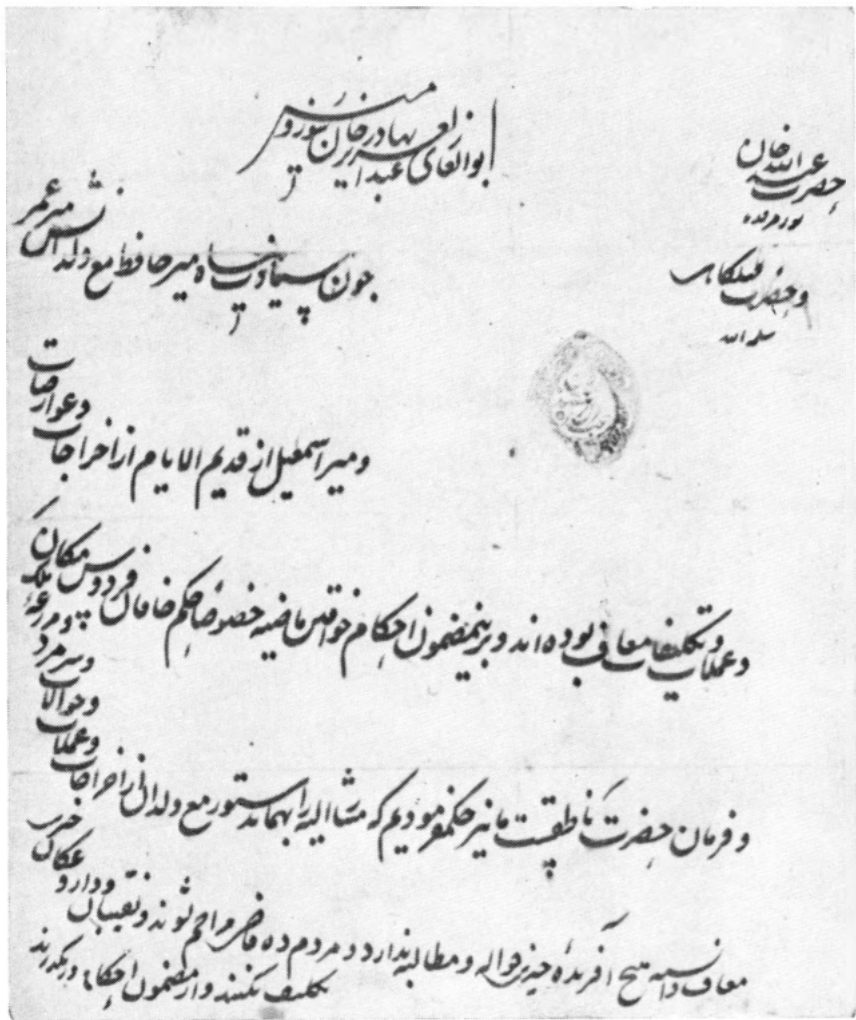 ابوالغازی عبدالعزیز بهادر خان سوزومیز
حضرت عبدالله خان
نور مرقده
و حضرت قبلکاهی
سلمه الله
چون سیادت پناه میر حافظ مع ولدانش میر عمر
و میر اسمعیل از قدیم الایام از اخراجات و عوارضات
و عملیات و تکلیفات معاف بوده اند و برینمضمون احکام خواقین ماضیه خصوصا حکم خاقان فردوس مکان
و فرمان حضرت ناطقست ما نیز حکم فرمودیم که مشار الیه را بهماندستور مع ولدان از اخراجات و عملیات و حوالات
معاف دانسته هیچ آفریده چیزی حواله و مطالبه ندارد و مردم ده مزاحم نشوند و نقیبان و داروغکان
تکلیف نکنند و از مضمون احکام در نکذرند